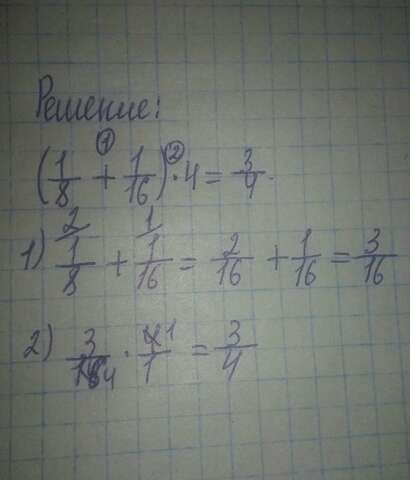 Решение:
(1/8 + 1/16) · 4 = 3/4.
1) 1/8 + 1/16 = 2/16 + 1/16 = 3/16
2) 3/16 · 4/1 = 3/4